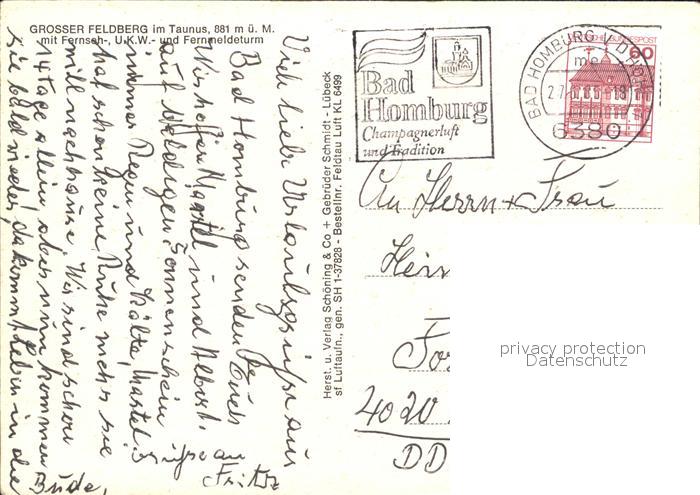 GROSSER FELDBERG im Taunus, 881 m ü. M.
mit Fernseh-, U.K.W.- und Fernmeldeturm
Viele liebe Urlaubsgrüsse aus
Bad Homburg senden Euch
Wir hoffen
auf baldigen Sonnenschein
immer Regen und Kälte,
hat schon keine Ruhe mehr sie
will nach hause, Wir sind schon
14 tage allein, aber nun kommen
sie bald wieder, da kommt Leben in die
Bude,
Grüsse an
Fritz
Herst. u. Verlag Schöning & Co + Gebrüder Schmidt - Lübeck
sf Luftaufn., gen. SH 1-37828 - Bestellnr. Feldtau Luft KL 6499
Bad
Homburg
Champagnerluft
und Tradition
BAD HOMBURG V D HÖHE
mc
6380
60
An Herrn + Frau
4020
DD
privacy protection
Datenschutz